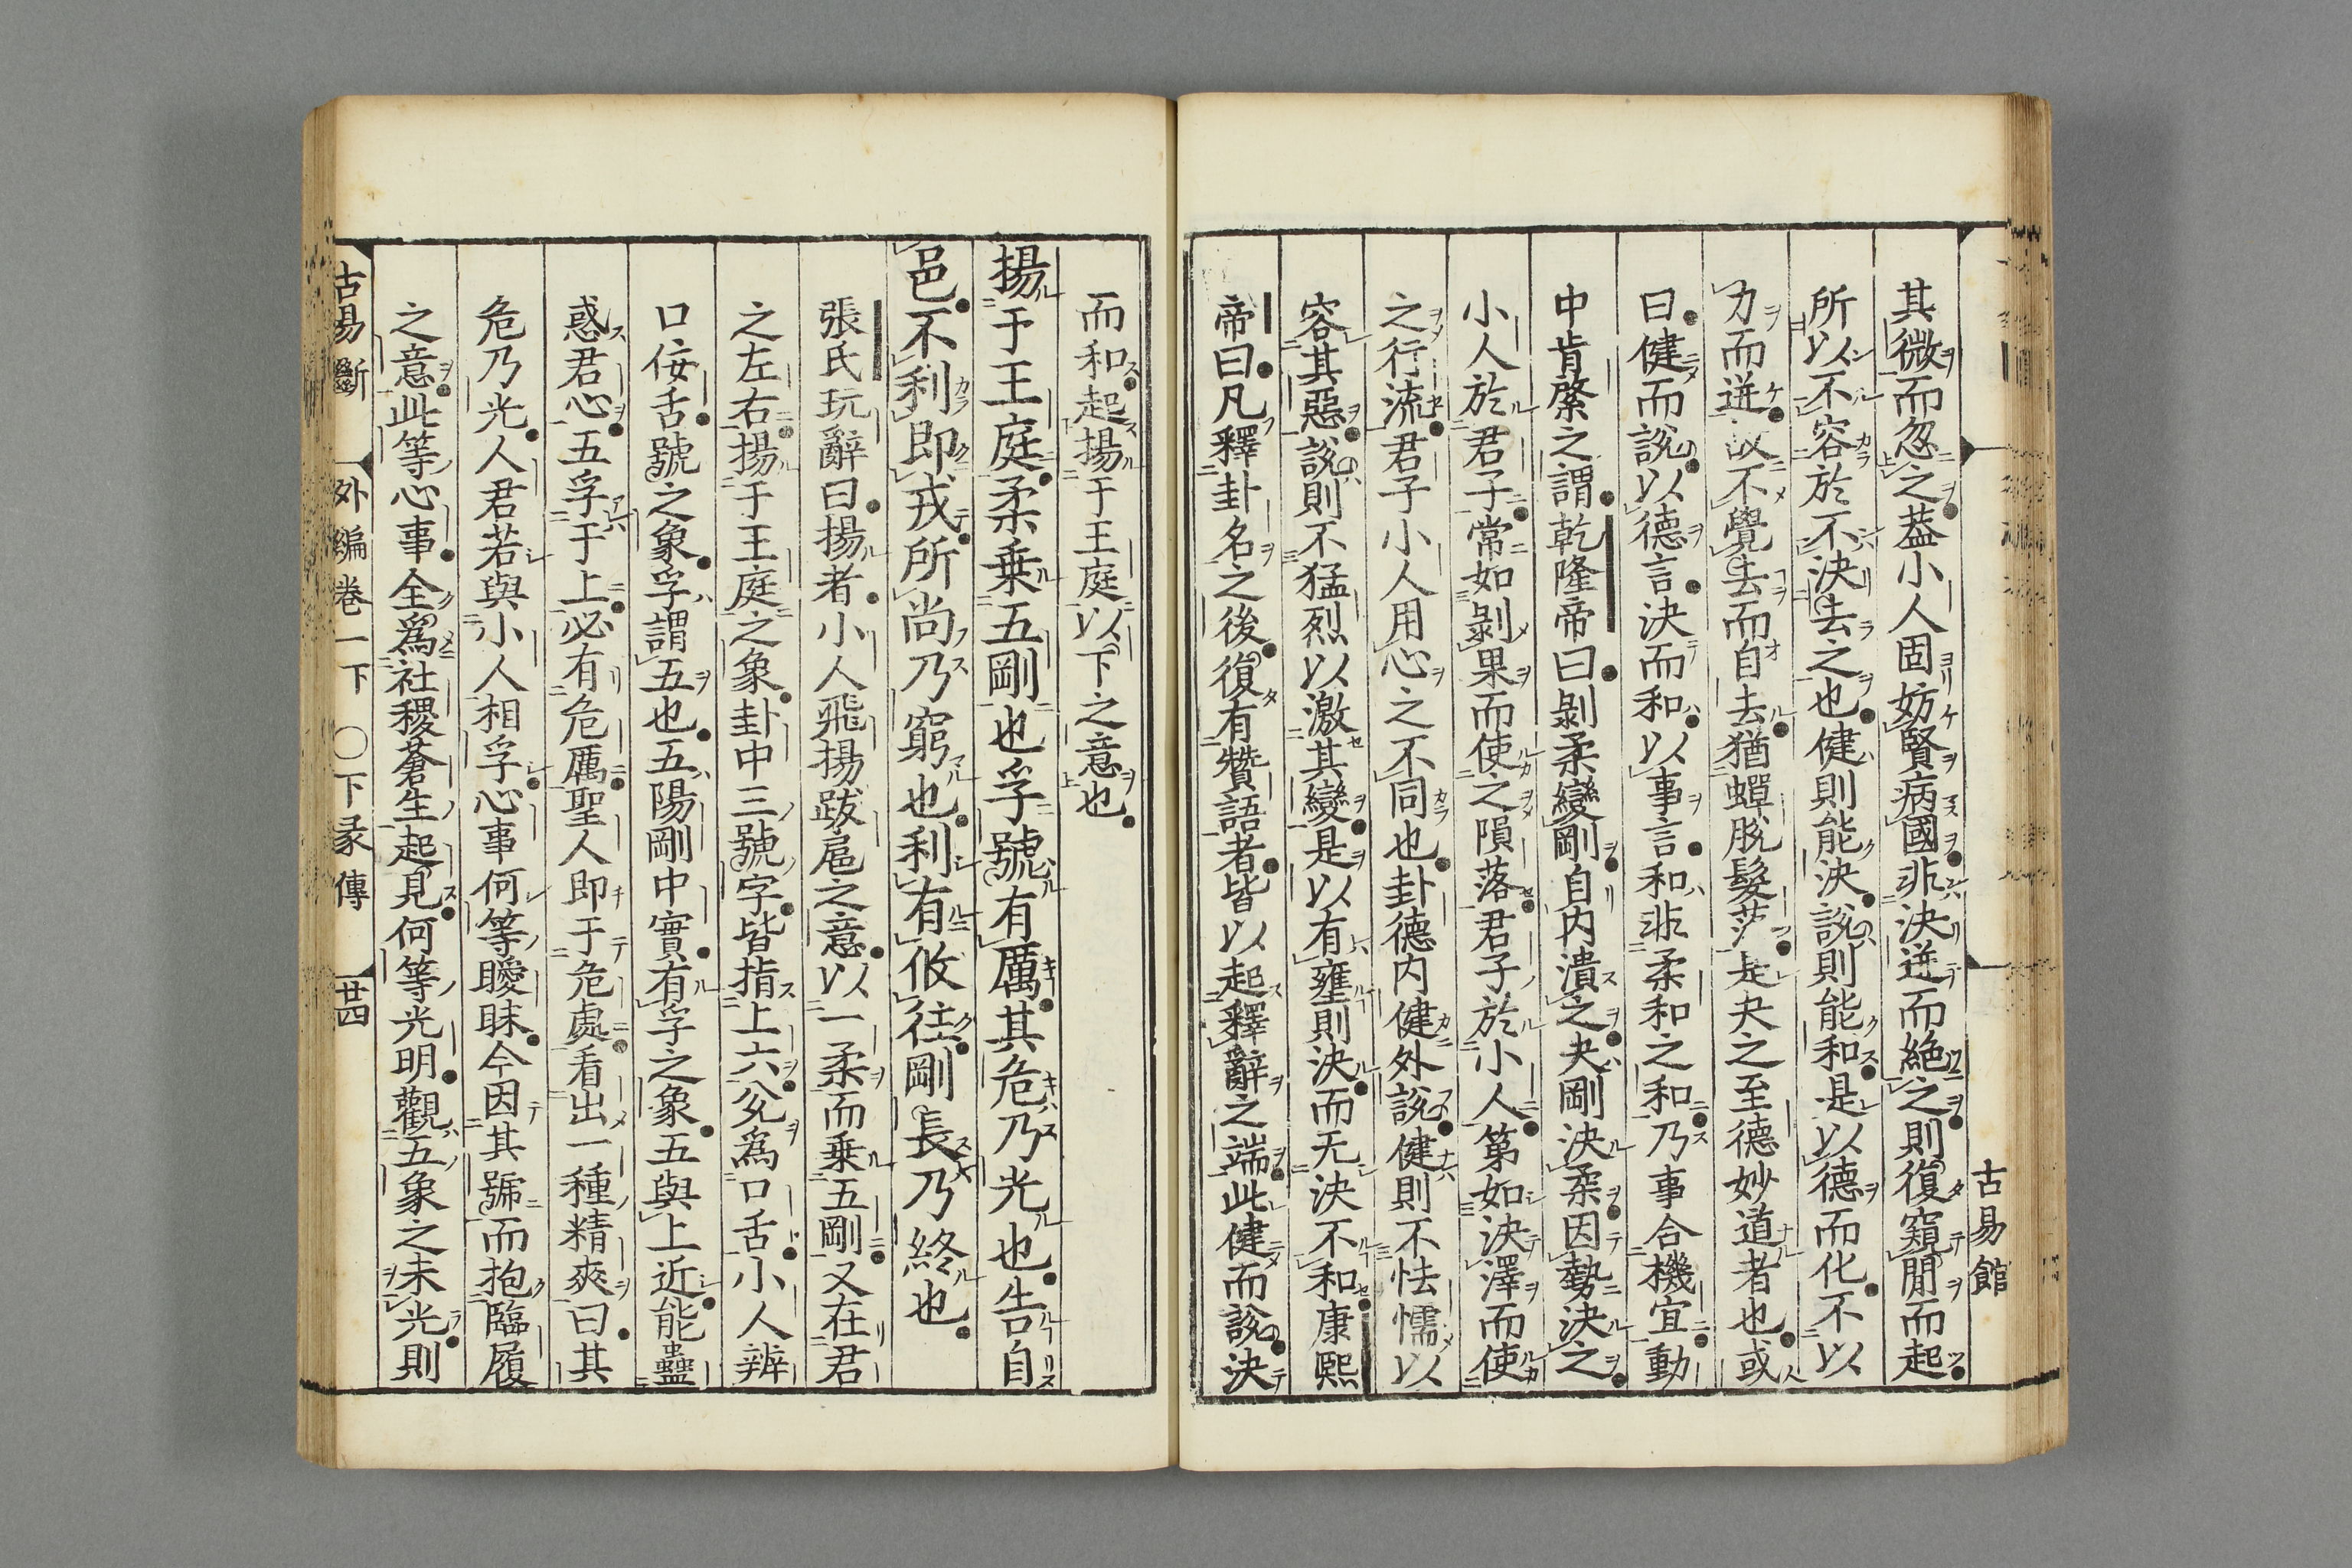 其微而忽之葢小人固妨賢病國非決迸而絶之則復窺閒而起
所以不容於不決去之也健則能決說則能和是以德而化不以
力而迸故不覺去而自去猶蟬脫髮落是夬之至德妙道者也或
曰健而說以德言決而和以事言和非柔和之和乃事合機宜動
中肯綮之謂乾隆帝曰剝柔變剛自内潰之夬剛決柔因勢決之
小人於君子常如剝果而使之隕落君子於小人第如決澤而使
之行流君子小人用心之不同也卦德内健外說健則不怯懦以
容其惡說則不猛烈以激其變是以有壅則決而无決不和康熙
帝曰凡釋卦名之後復有贊語者皆以起釋辭之端此健而說決
古易館
而和起揚于王庭以下之意也
揚于王庭柔乗五剛也孚號有厲其危乃光也告自
邑不利即戎所尚乃窮也利有攸往剛長乃終也
張氏玩辭曰揚者小人飛揚跋扈之意以一柔而乗五剛又在君
之左右揚于王庭之象卦中三號字皆指上六兊爲口舌小人辨
口佞舌號之象孚謂五也五陽剛中實有孚之象五與上近能蠱
惑君心五孚于上必有危厲聖人即于危處看出一種精爽曰其
危乃光人君若與小人相孚心事何等曖昧今因其號而抱臨履
之意此等心事全爲社稷蒼生起見何等光明觀五象之未光則
古易斷 外編卷一下 〇下彖傳 廿四